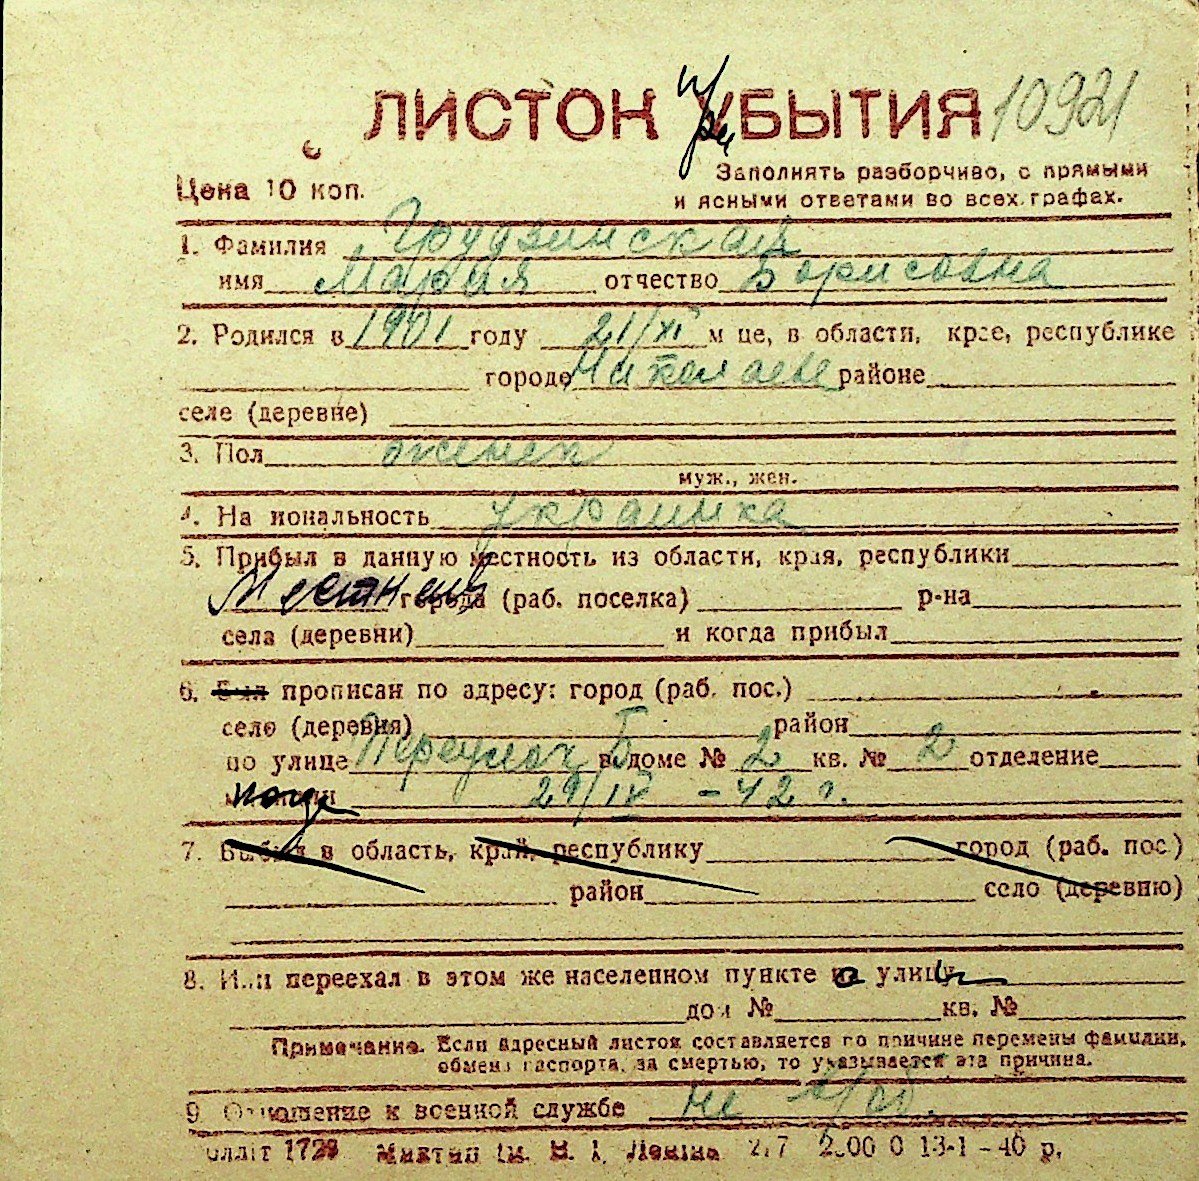 ЛИСТОК УБЫТИЯ 10921
При
Цена 10 коп.
Заполнять разборчиво, с прямыми
и ясными ответами во всех графах.
1. Фамилия Грудзинская
имя Мария отчество Борисовна
2. Родился в 1901 году 21/XI м це, в области, крае, республике
городе Николаеве районе
селе (деревне)
3. Пол женск
муж., жен.
4. На иональность украинка
5. Прибыл в данную местность из области, края, республики
Местная города (раб. поселка) р-на
села (деревни) и когда прибыл
6. Был прописан по адресу: город (раб. пос.)
село (деревня) район
по улице в доме № 2 кв. № 2 отделение
29/IV - 42 г.
7. Выбыл в область, край, республику город (раб. пос.)
район село (деревню)
8. Или переехал в этом же населенном пункте на улицу
дом № кв. №
Примечание. Если адресный листок составляется по причине перемены фамилии,
обмена паспорта, за смертью, то указывается эта причина.
9. Отношение к военной службе не в/об.
1729 Миктип ім. В. І. Леніна 13-1-40 р.